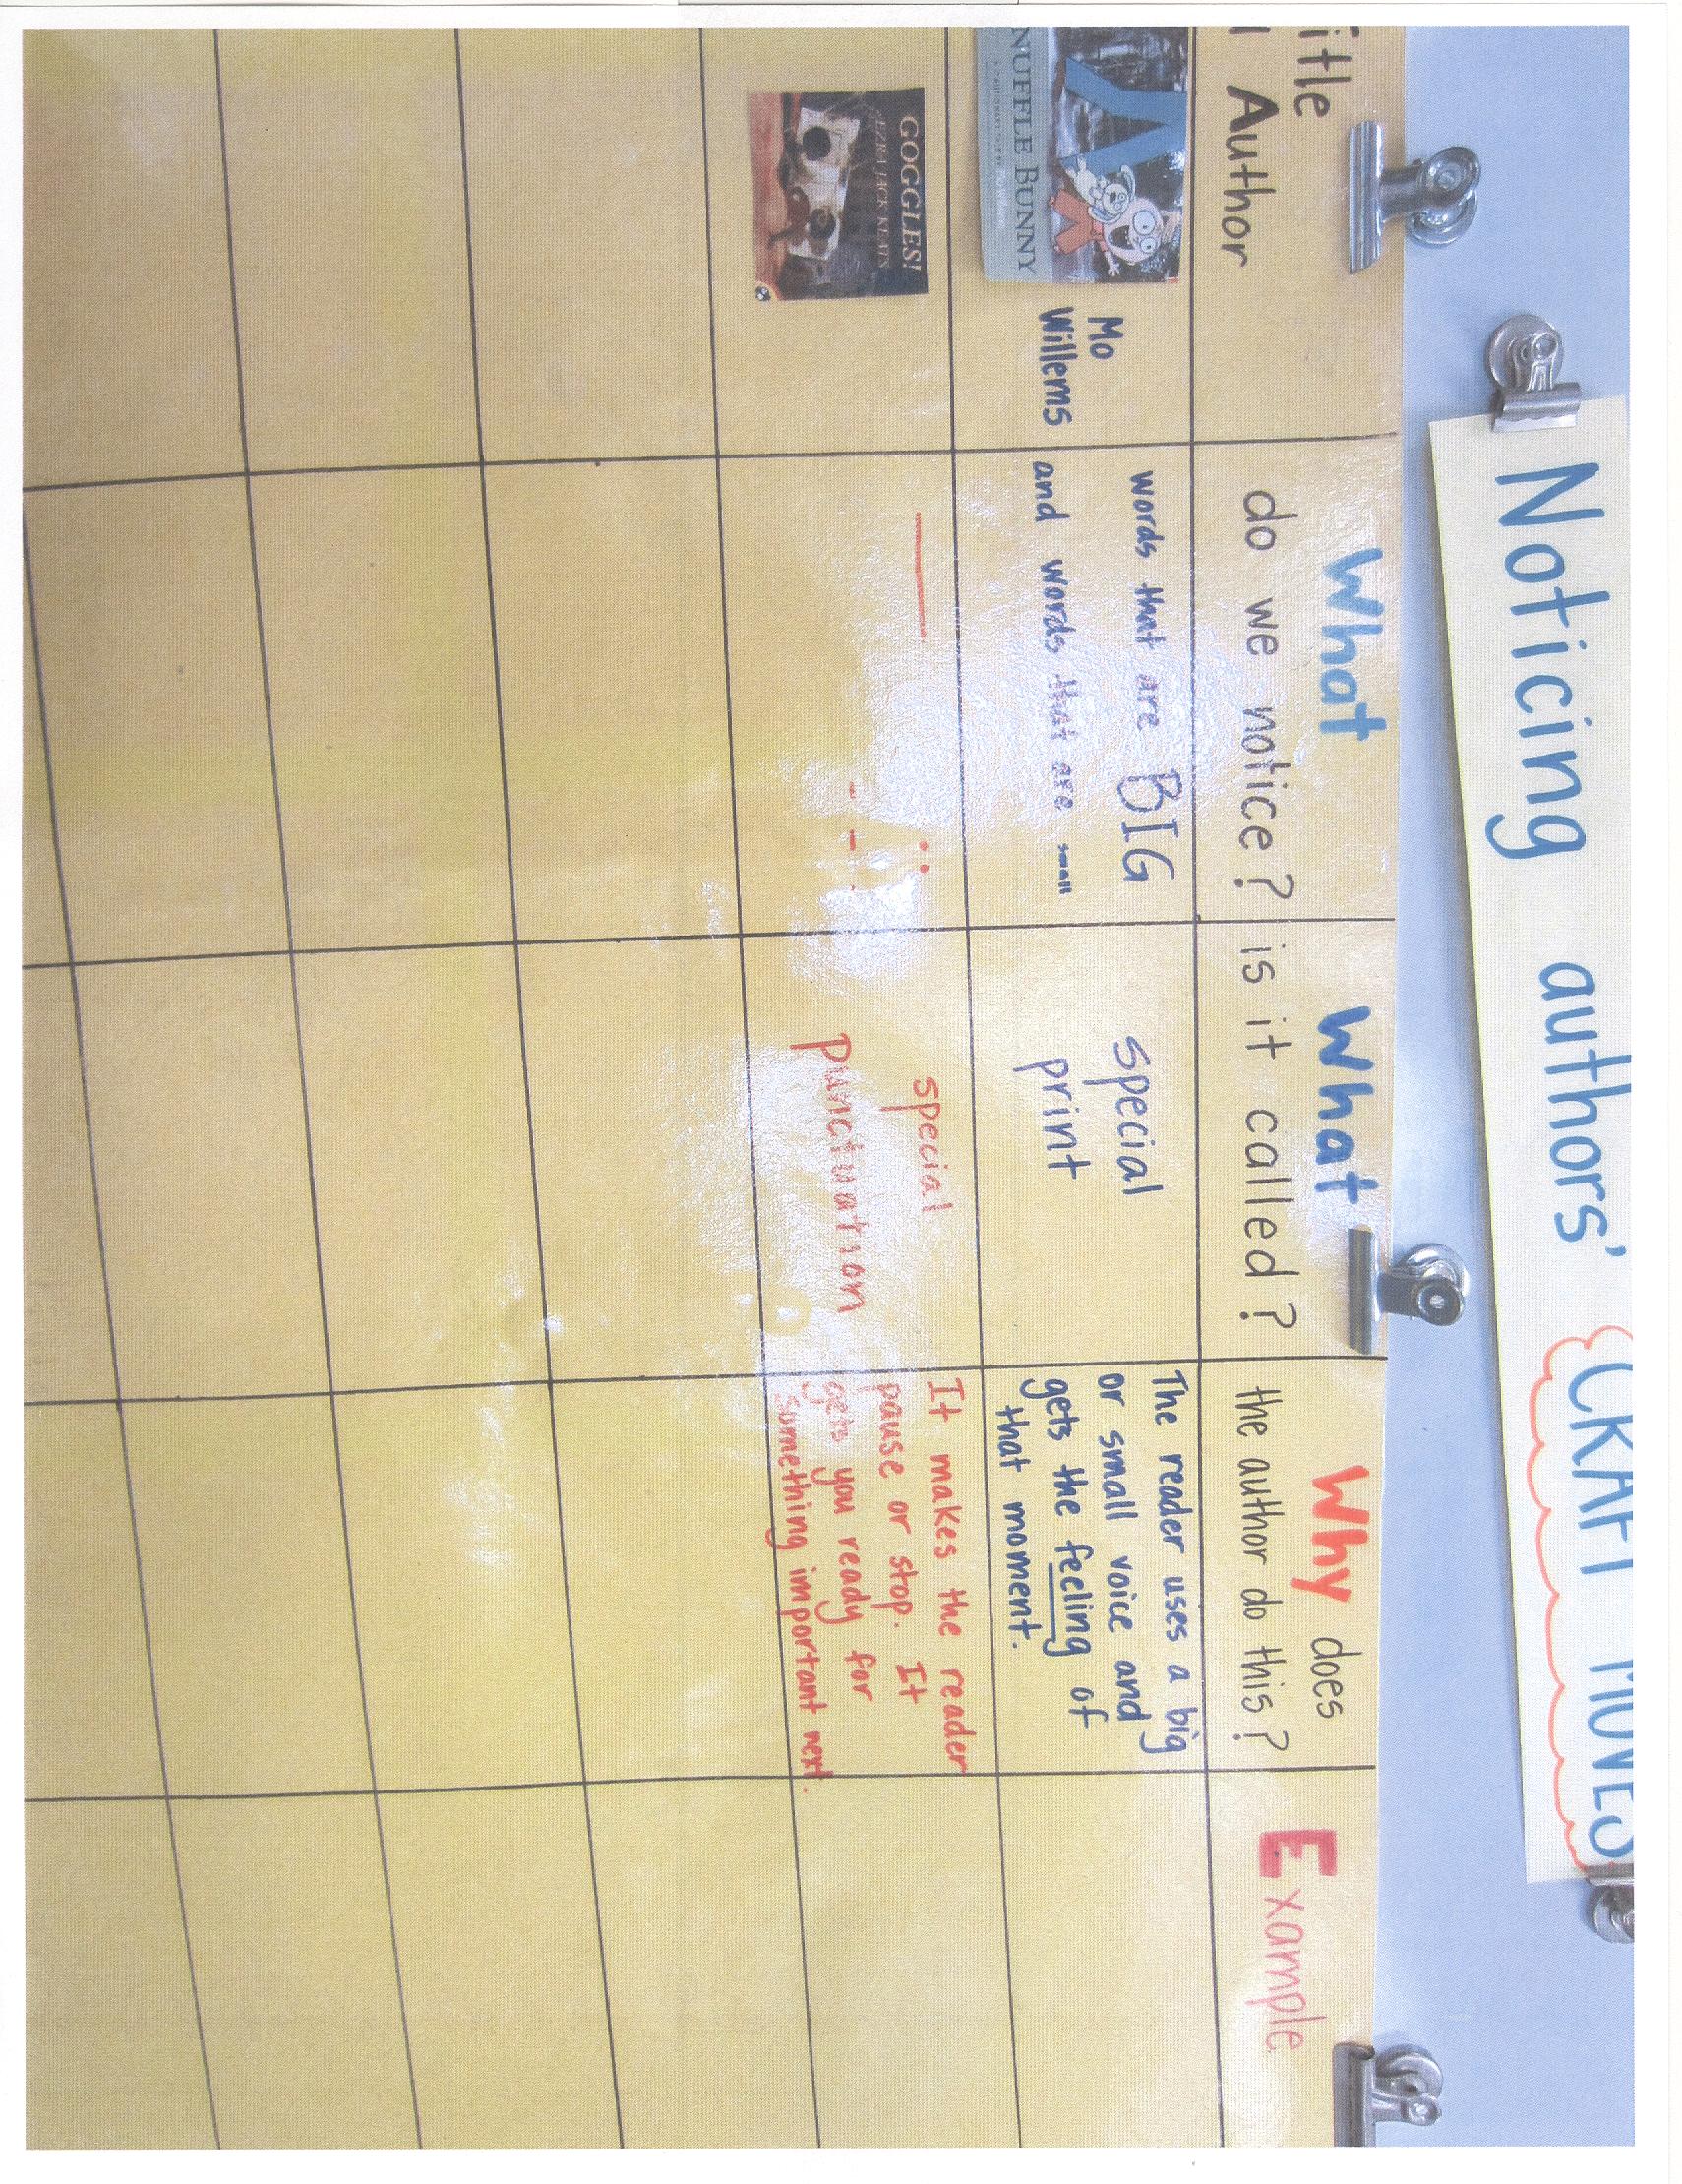 Noticing authors' CRAFT MOVES
itle
Author
What
do we notice?
What
is it called?
Why does
the author do this?
Example
NUFFLE BUNNY
Mo
Willems
words that are BIG
and words that are small
special
print
The reader uses a big
or small voice and
gets the feeling of
that moment.
GOGGLES!
EZRA JACK KEATS
special
punctuation
It makes the reader
pause or stop. It
gets you ready for
something important next.